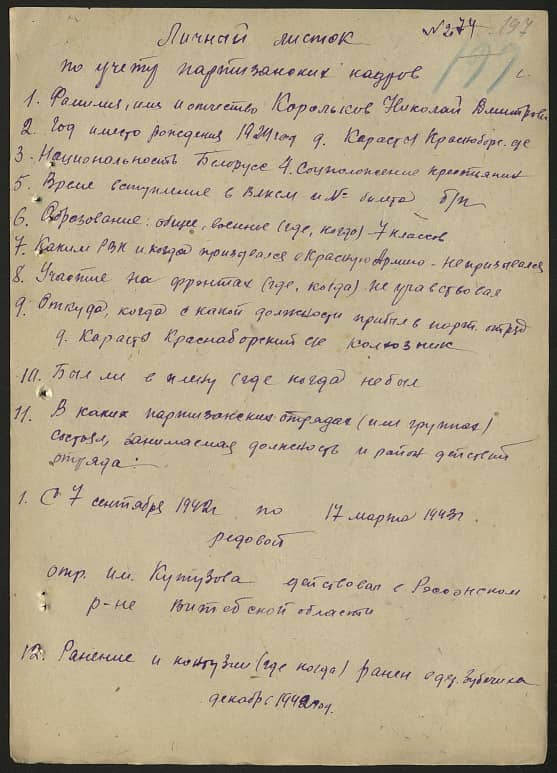 №274 197
Личный листок
по учету партизанских кадров
1. Фамилия, имя и отчество Корольков Николай Дмитров.
2. Год и место рождения 1924 год д. Карасты Краснобор. с/с
3. Национальность Белорусс 4. Соцположение крестьянин
5. Время вступления в ВЛКСМ и № билета б/п
6. Образование: общее, военное (где, когда) 7 классов
7. Каким РВК и когда призывался в Красную Армию - не призывался
8. Участие на фронтах (где, когда) не учавствовал
9. Откуда, когда с какой должности прибыл в парт. отряд
д. Карасты Краснаборский с/с колхозник
10. Был ли в плену (где когда) небыл
11. В каких партизанских отрядах (или группах)
состоял, занимаемая должность и район действий
отряда:
1. С 7 сентября 1942г по 17 марта 1943г.
редовой
отр. им. Кутузова действовал в Россонском
р-не Витебской области
12. Ранение и контузии (где когда) ранен
декабрь 1942 год.